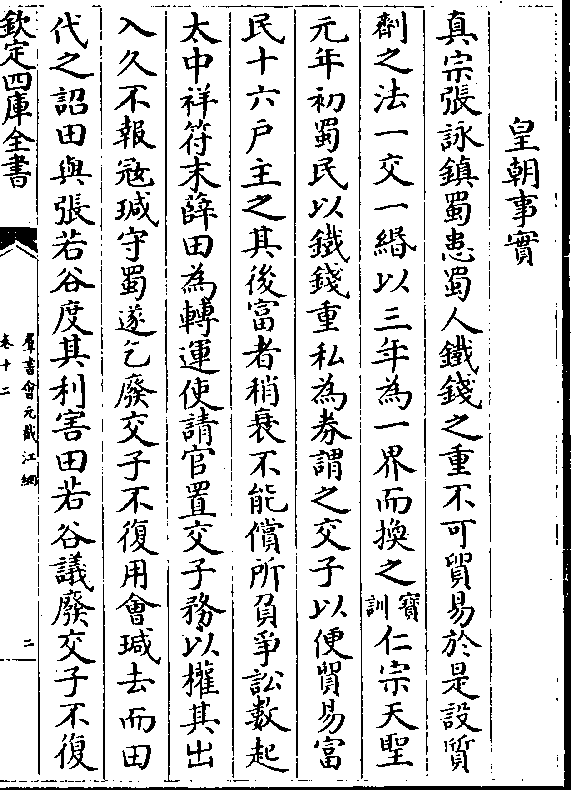 皇朝事實
真宗張詠鎮蜀患蜀人鐵錢之重不可貿易於是設質
劑之法一交一緡以三年為一界而換之寳訓仁宗天聖
元年初蜀民以鐵錢重私為劵謂之交子以便貿易富
民十六户主之其後富者稍衰不能償所負爭訟數起
太中祥符末薛田為轉運使請官置交子務以權其出
入久不報冦瑊守蜀遂乞廢交子不復用會瑊去而田
代之詔田與張若谷度其利害田若谷議廢交子不復
欽定四庫全書
羣書會元截江網
卷十二
二